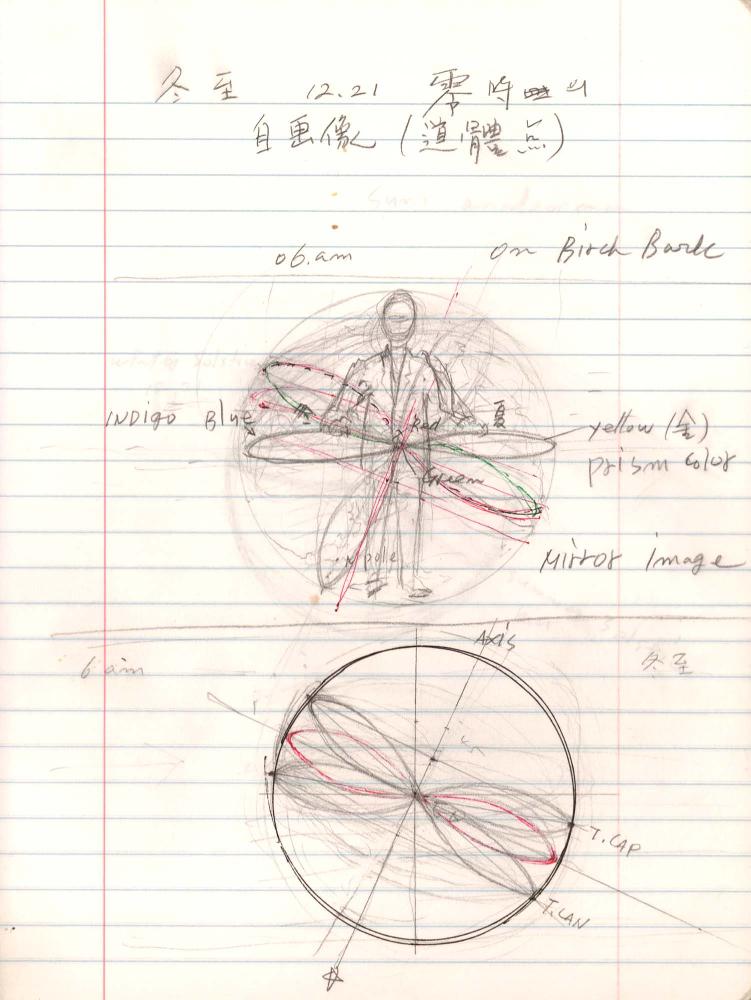 冬至 12.21 零時
自画像 (道體点)
06.am
on Birch Bark
INDIGO Blue
冬
Red
夏
yellow (金)
prism color
Green
N pole
Mirror image
Axis
6 am
冬至
T.CAP
T.CAN